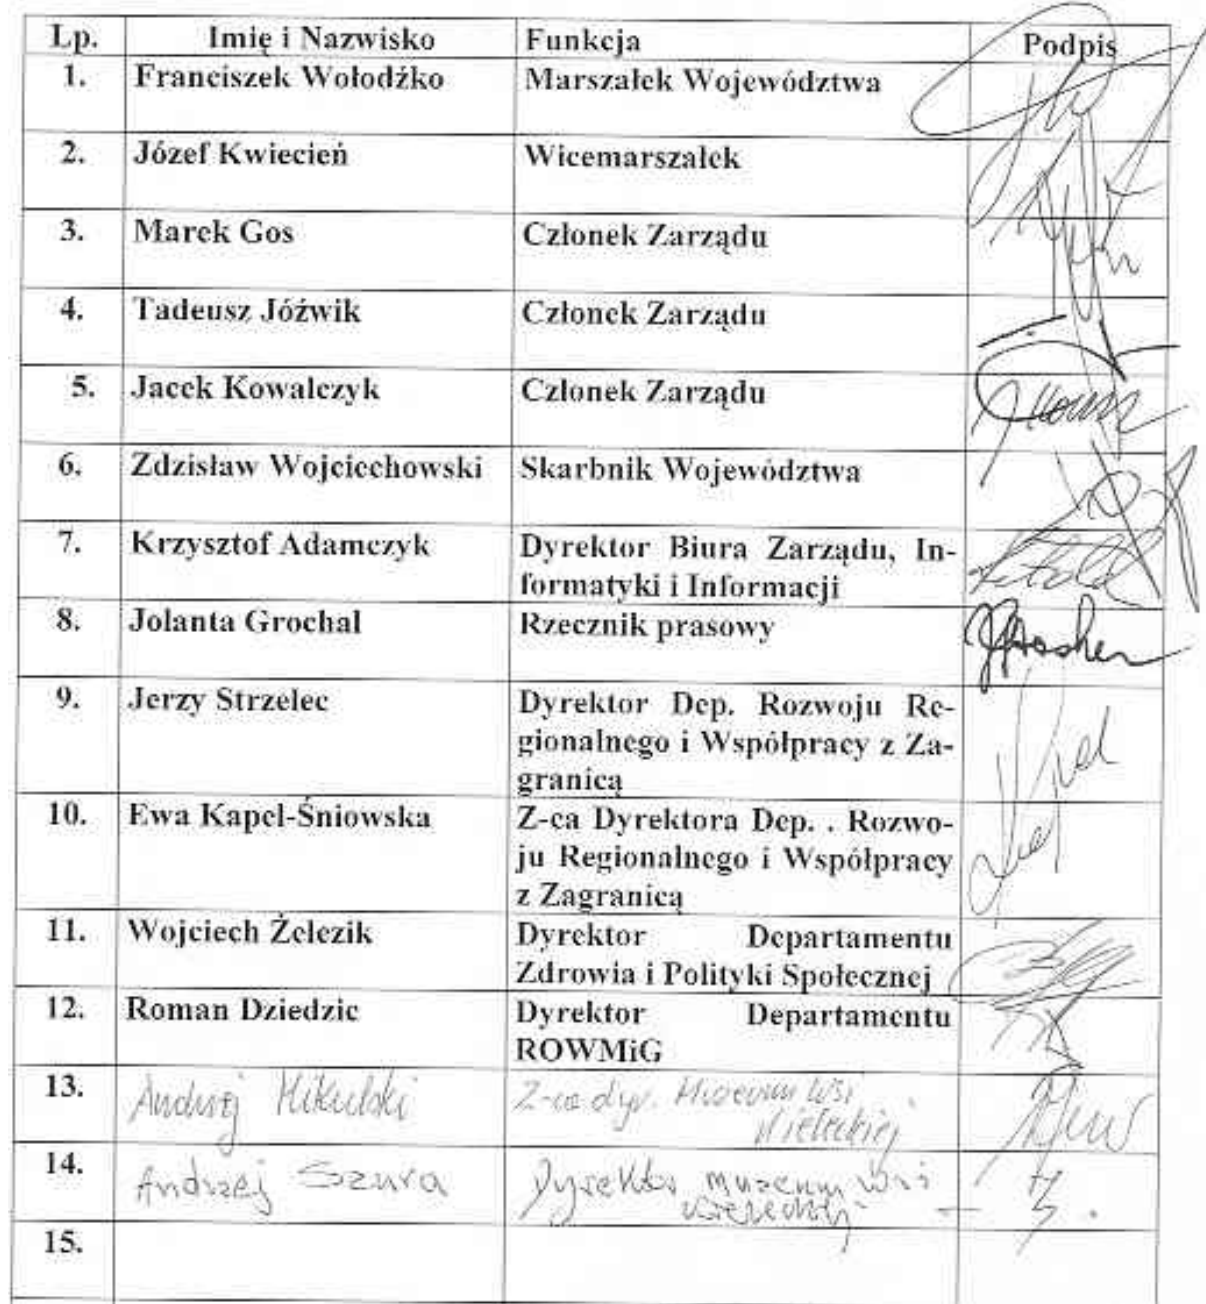 Lp. Imię i Nazwisko Funkcja Podpis
1. Franciszek Wołodźko Marszałek Województwa
2. Józef Kwiecień Wicemarszałek
3. Marek Gos Członek Zarządu
4. Tadeusz Jóźwik Członek Zarządu
5. Jacek Kowalczyk Członek Zarządu
6. Zdzisław Wojciechowski Skarbnik Województwa
7. Krzysztof Adamczyk Dyrektor Biura Zarządu, In-
formatyki i Informacji
8. Jolanta Grochal Rzecznik prasowy
9. Jerzy Strzelec Dyrektor Dep. Rozwoju Re-
gionalnego i Współpracy z Za-
granicą
10. Ewa Kapel-Śniowska Z-ca Dyrektora Dep. . Rozwo-
ju Regionalnego i Współpracy
z Zagranicą
11. Wojciech Żelezik Dyrektor Departamentu
Zdrowia i Polityki Społecznej
12. Roman Dziedzic Dyrektor Departamentu
ROWMiG
13. Andrzej Mikulski Z-ca dyr. Muzeum Wsi
Kieleckiej
14. Andrzej Szura Dyrektor muzeum Wsi
Kieleckiej
15.